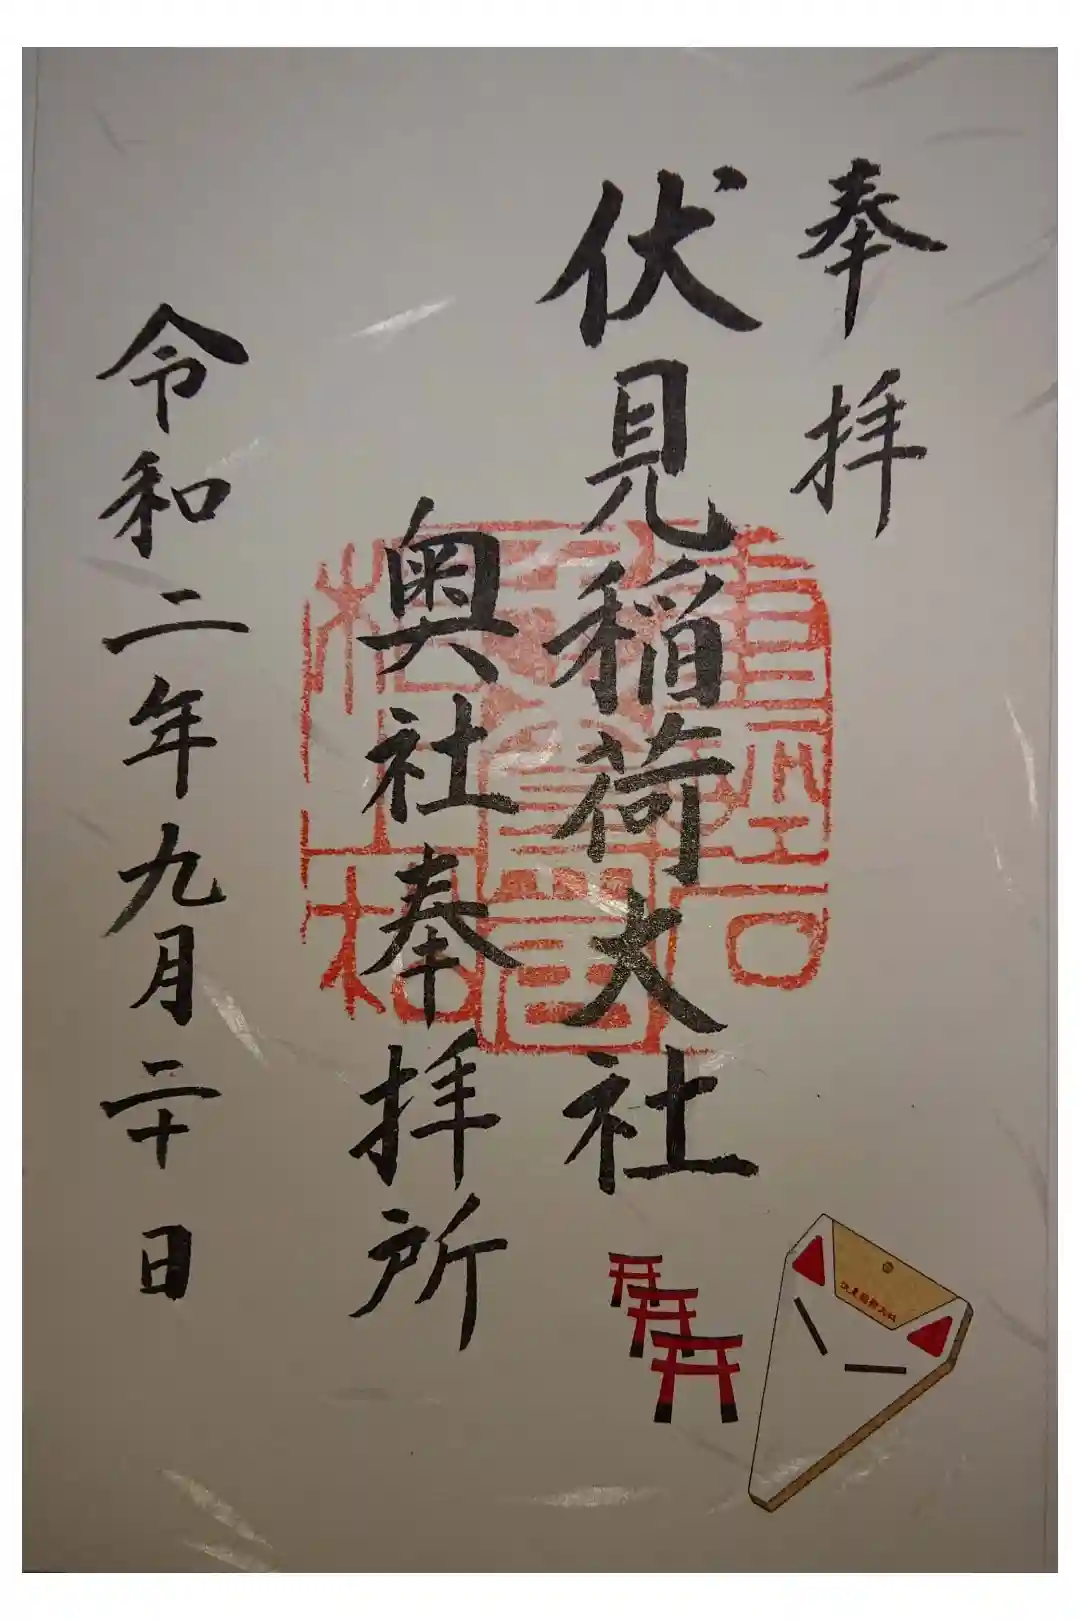 奉拝
伏見稲荷大社
奥社奉拝所
令和二年九月二十日
伏見稲荷大社